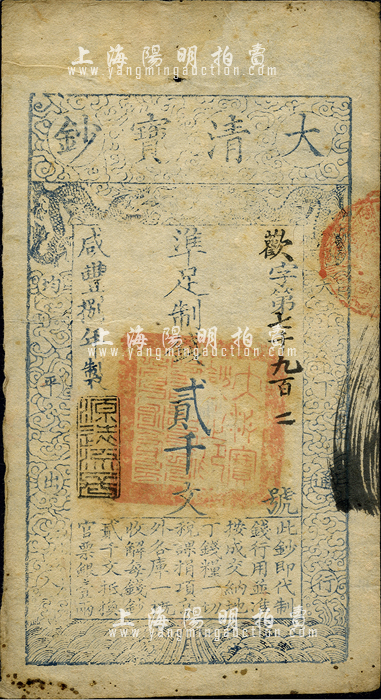 上海陽明拍賣
www.yangmingauction.com
大清寶鈔
歡字第七千九百二號
準足制錢貳千文
咸豐捌年製
源遠流長
天下通行
均平出入
此鈔即代制
錢行用並準
按成交納地
丁錢糧一切
稅課捐項
外各庫一
收解每錢
貳千文抵換
官票銀壹兩
上海陽明拍賣
www.yangmingauction.com
上海陽明拍賣
www.yangmingauction.com